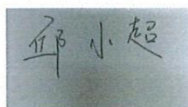 邱小超